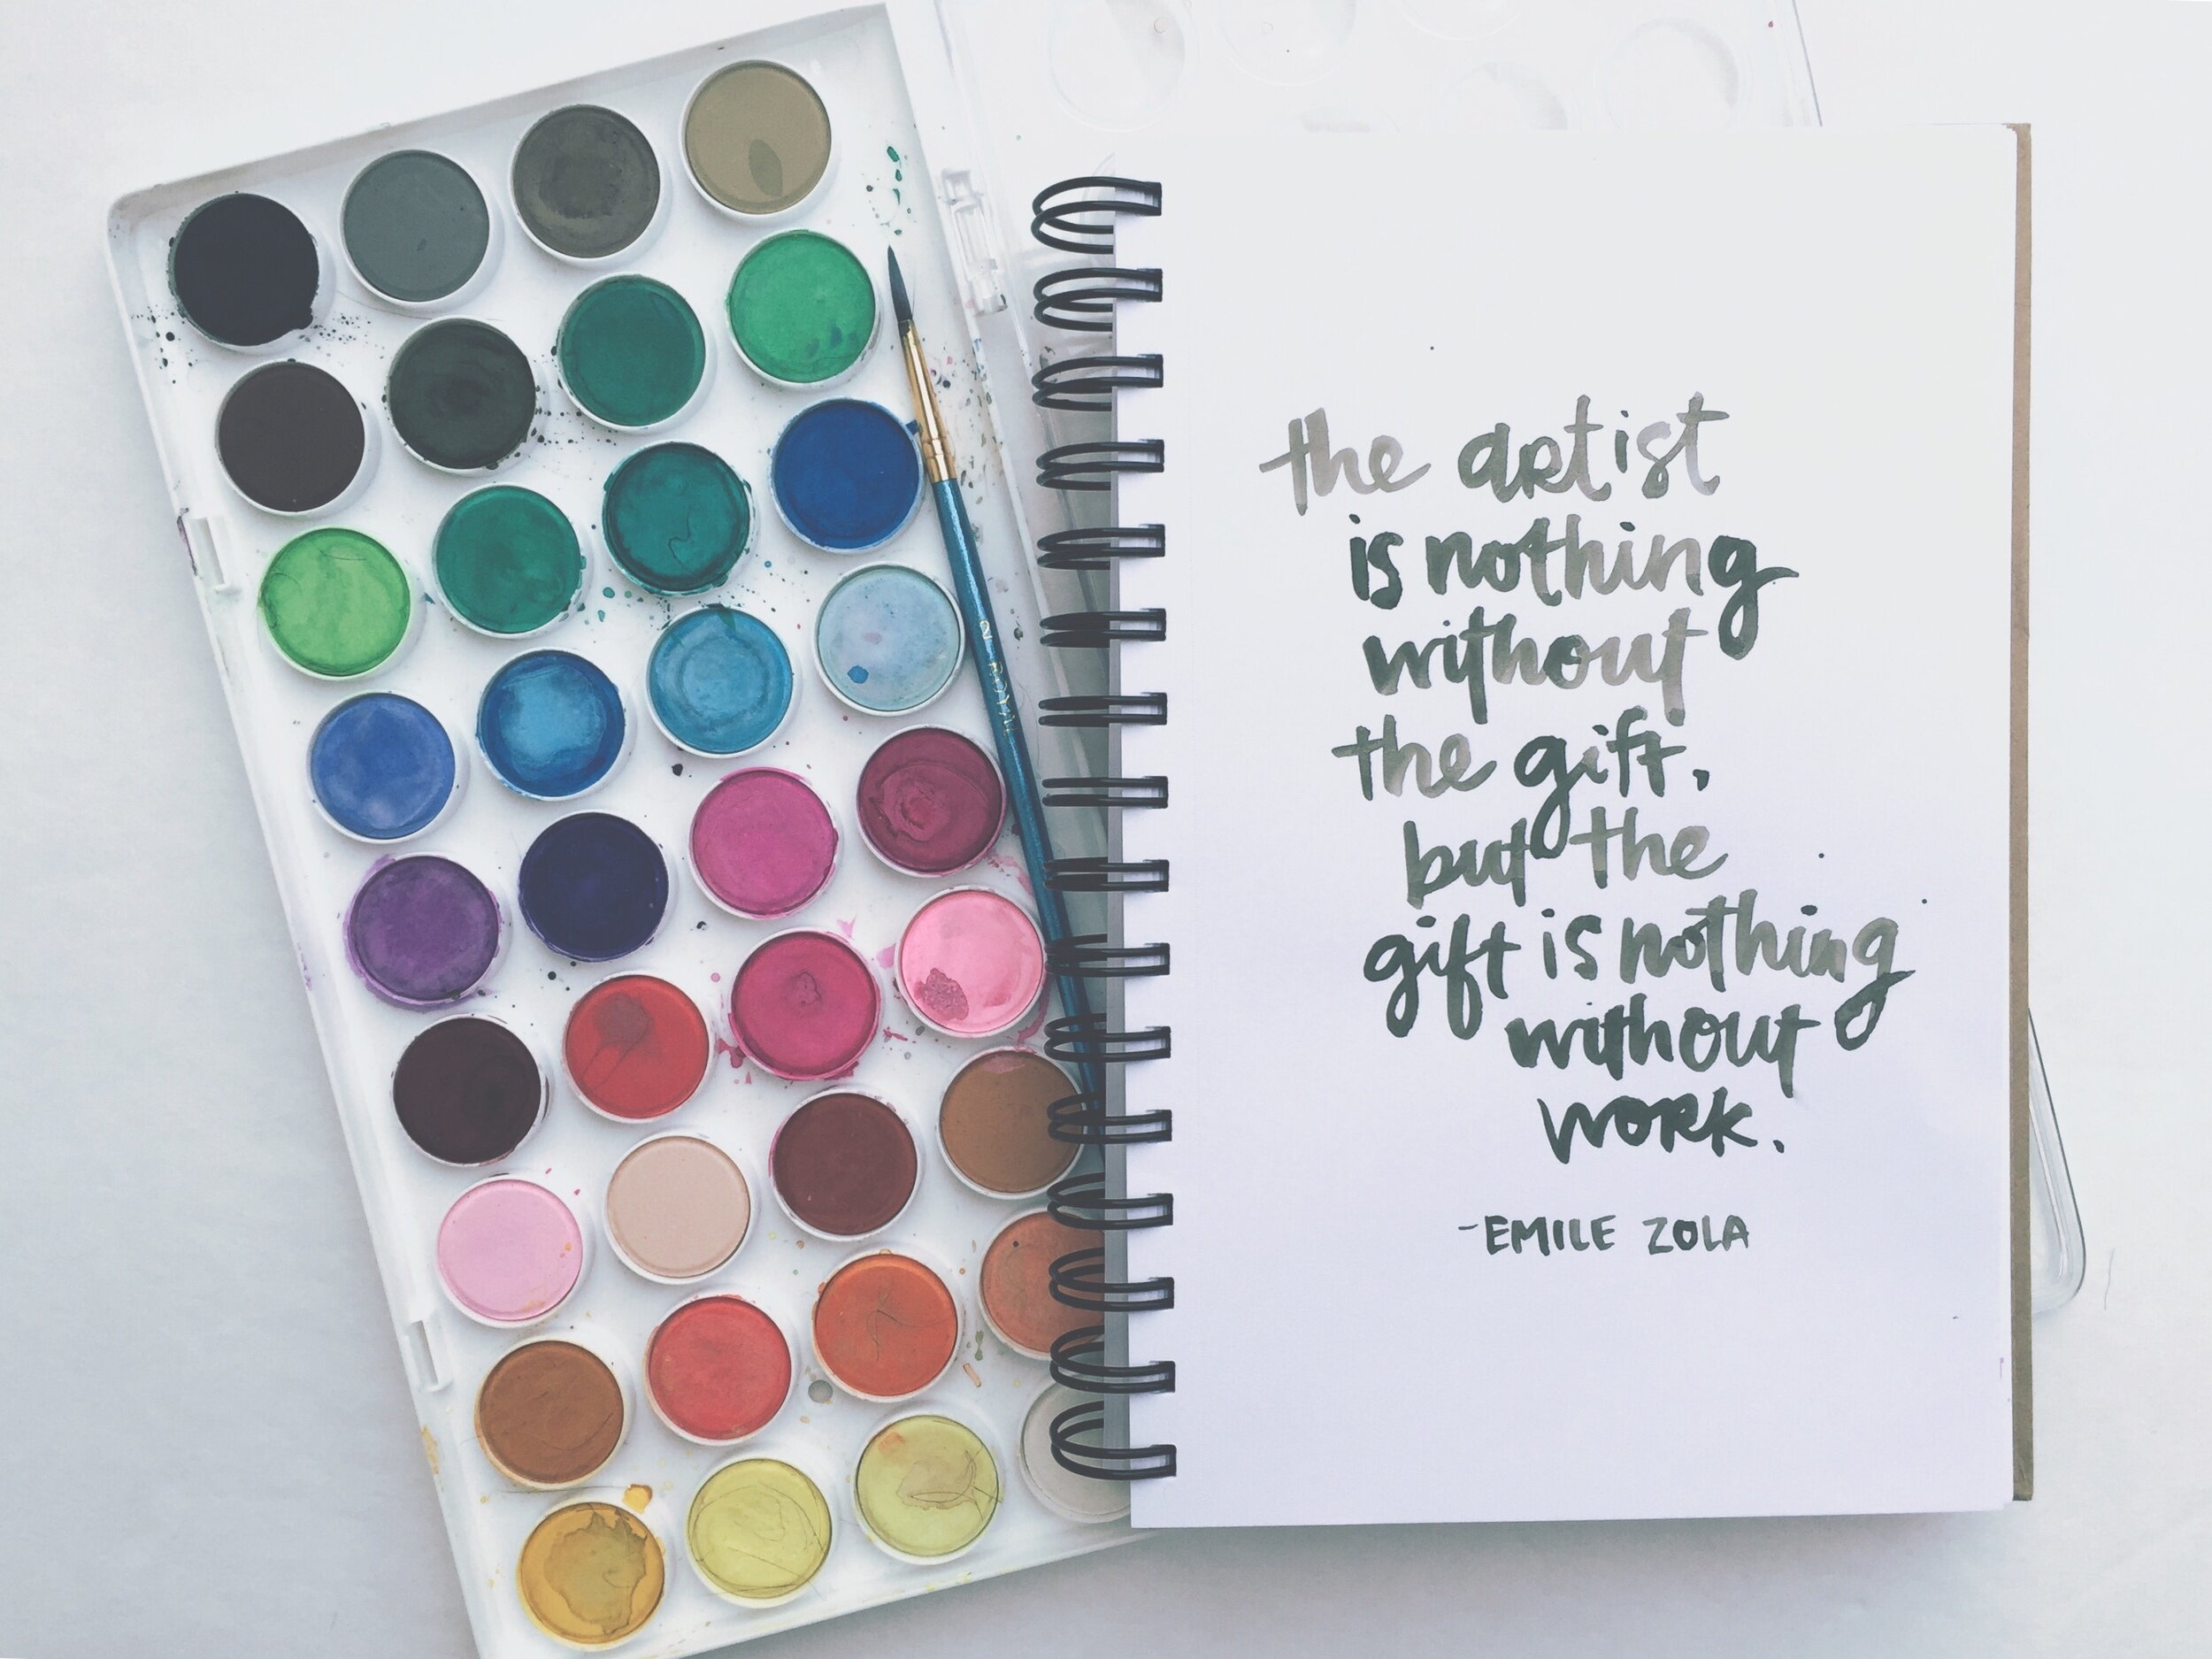 the artist
is nothing
without
the gift,
but the
gift is nothing
without
work.
-EMILE ZOLA
2 ROYAL